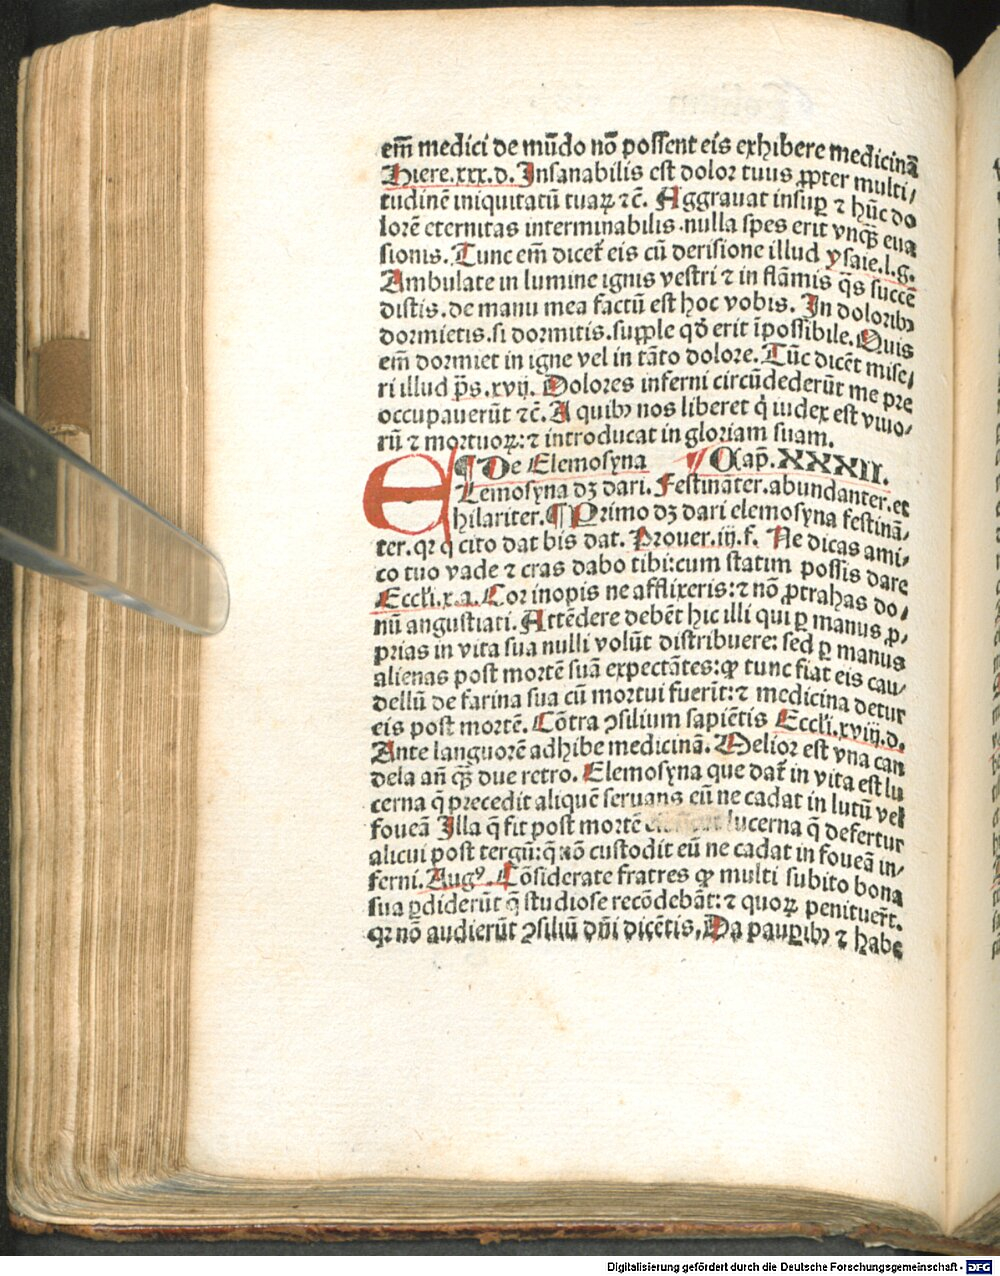 em̄ medici de mūdo nō possent eis exhibere medicinā
Hiere.xxx.d. Insanabilis est dolor tuus ꝓpter multi/
tudinē iniquitatū tuaꝝ ⁊c̄. Aggrauat insuꝑ ⁊ hūc do
lorē eternitas interminabilis.nulla spes erit vnqꝫ eua
sionis. Tunc em̄ dicet̄ eis cū derisione illud ysaie.l.g.
Ambulate in lumine ignis vestri ⁊ in flāmis q̄s succē
distis.de manu mea factū est hoc vobis. In doloribꝫ
dormietis.si dormitis.supple qd̄ erit īpossibile. Quis
em̄ dormiet in igne vel in tāto dolore. Tūc dicēt mise/
ri illud p̄s.xvij. Dolores inferni circūdederūt me pre
occupauerūt ⁊c̄. A quibꝫ nos liberet q̇ iudex est viuo/
rū ⁊ mortuoꝝ:⁊ introducat in gloriam suam.
¶ De Elemosyna ¶ Cap̄.XXXII.
ELemosyna dꝫ dari. Festinater.abundanter.et
hilariter.¶ Primo dꝫ dari elemosyna festinā/
ter.qꝛ q̇ cito dat bis dat. Prouer.iij.f. Ne dicas ami/
co tuo vade ⁊ cras dabo tibi:cum statim possis dare
Eccli.x.a. Cor inopis ne afflixeris:⁊ nō ꝓtrahas do/
nū angustiati. Attēdere debēt hic illi qui ꝑ manus ꝓ/
prias in vita sua nulli volūt distribuere: sed ꝑ manus
alienas post mortē suā expectātes:ꝙ tunc fiat eis cau/
dellū de farina sua cū mortui fuerīt:⁊ medicina detur
eis post mortē. Cōtra ꝯsilium sapiētis Eccli.xviij.d.
Ante languorē adhibe medicinā. Melior est vna can
dela an̄ qꝫ due retro. Elemosyna que dat̄ in vita est lu
cerna q̄ precedit aliquē seruans eū ne cadat in lutū vel
foueā Illa q̄ fit post mortē lucerna q̄ defertur
alicui post tergū:q̄ nō custodit eū ne cadat in foueā in/
ferni. Augꝰ. Cōsiderate fratres ꝙ multi subito bona
sua ꝑdiderūt q̄ studiose recōdebāt:⁊ quoꝝ penituer̄t.
qꝛ nō audierūt ꝯsiliū dn̄i dicētis. Da pauꝑibꝫ ⁊ habe
Digitalisierung gefördert durch die Deutsche Forschungsgemeinschaft - DFG